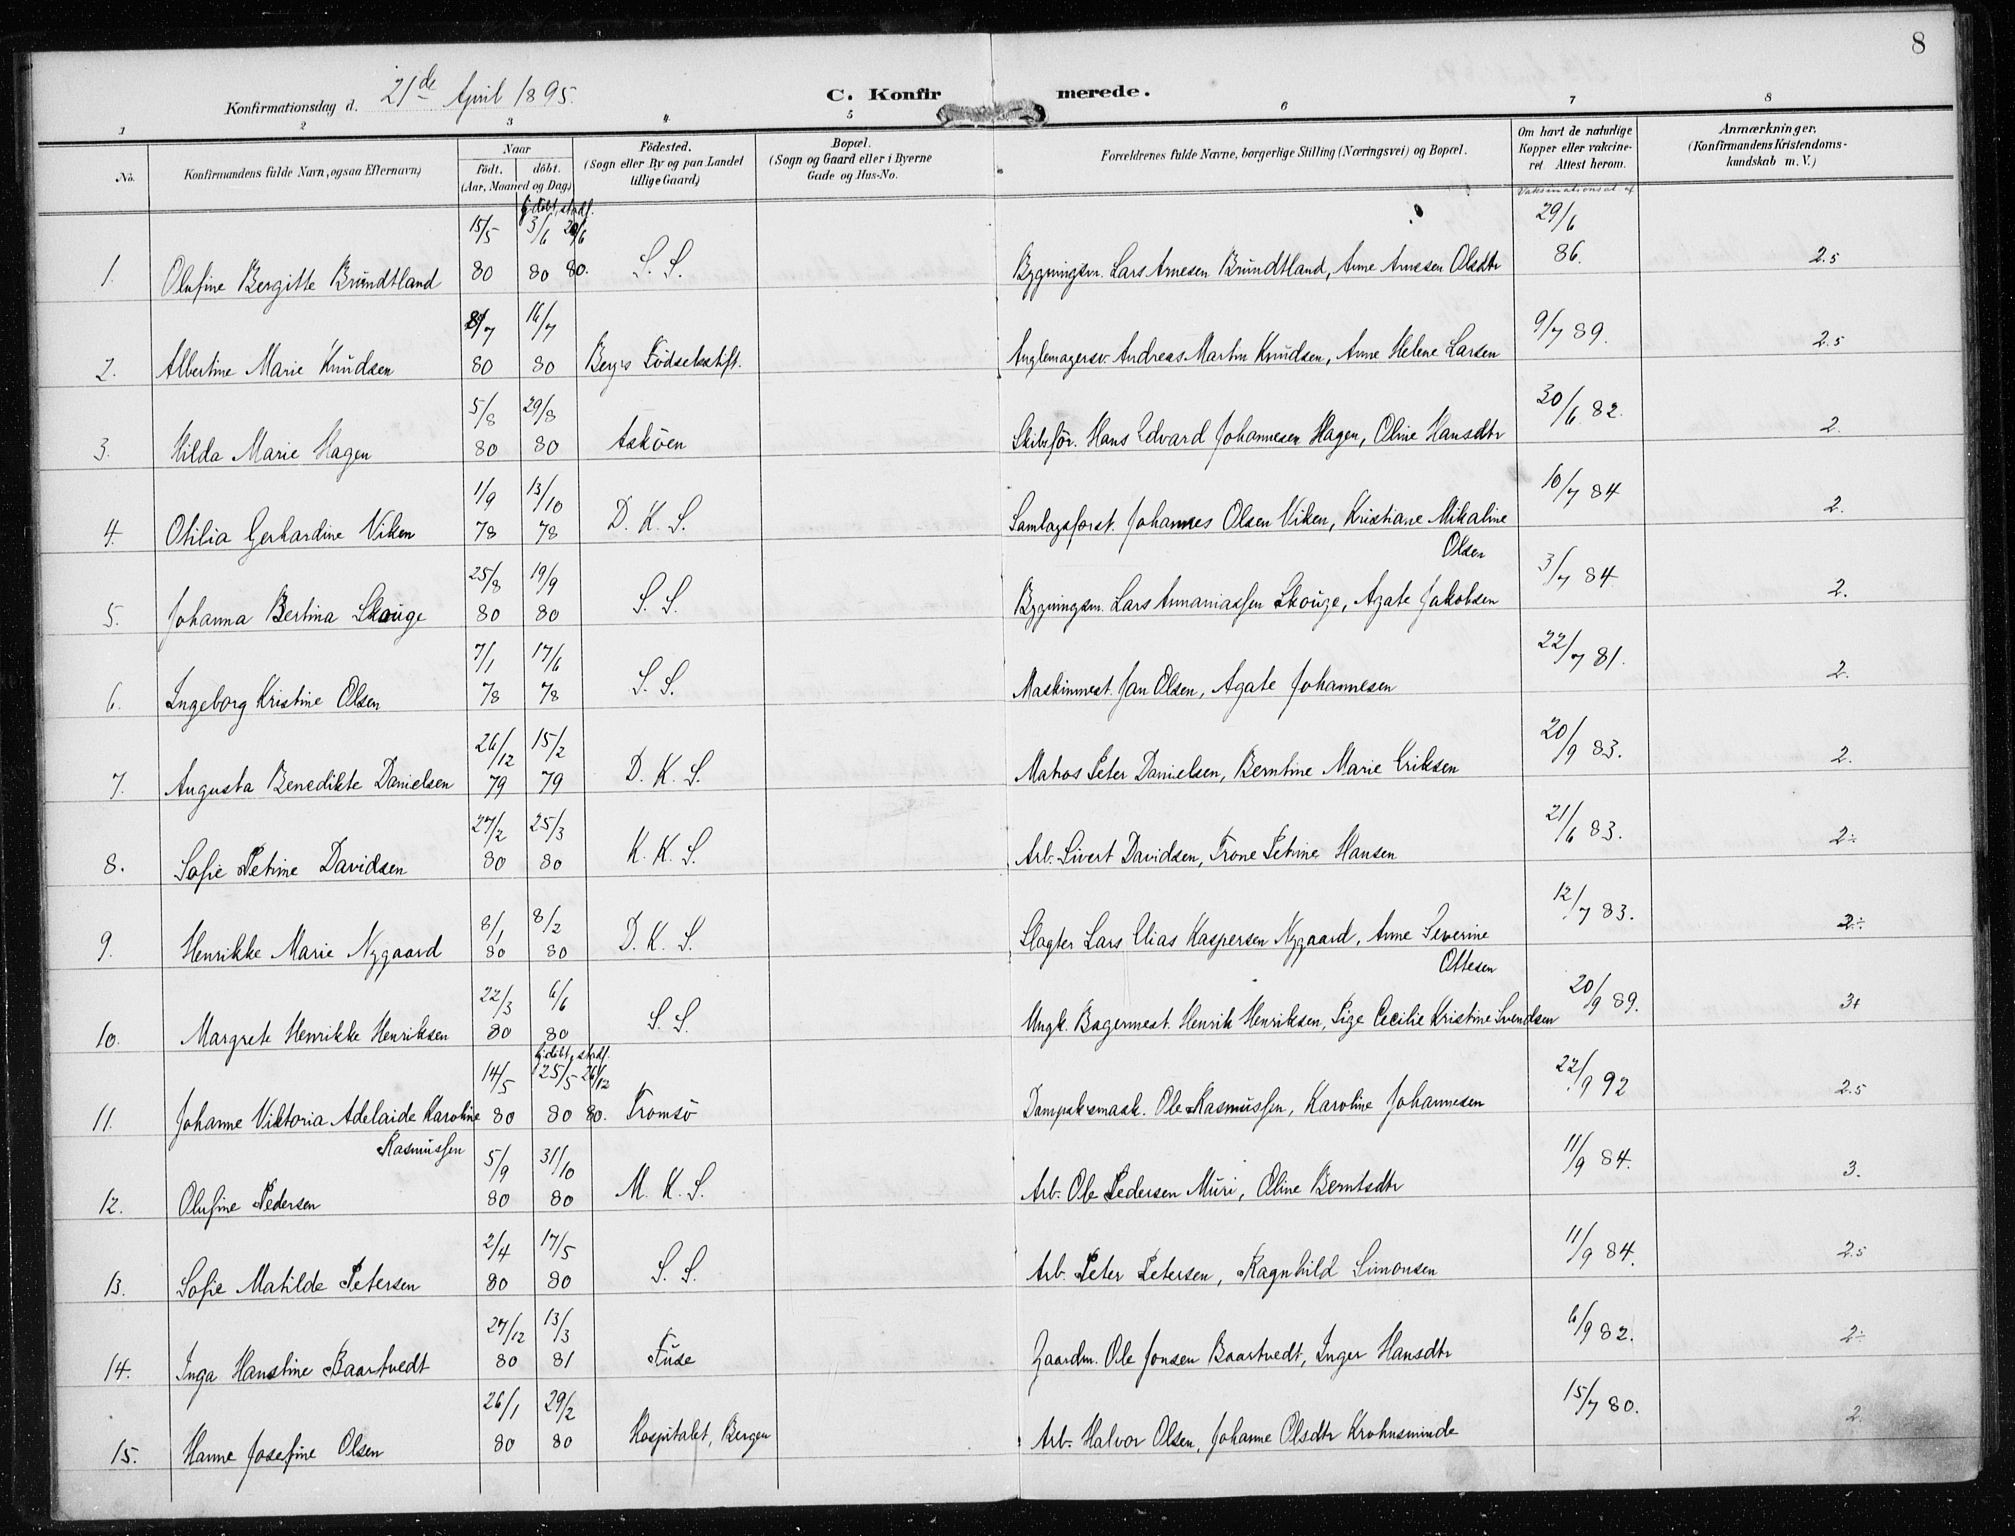 8
Konfirmationsdag d. 21de April 1895.
C. Konfir merede.
1 2 3 4 5 6 7 8
No.
Konfirmandens fulde Navn, ogsaa Efternavn)
Naar
födt. döbt.
(Aar, Maaned og Dag)
Födested.
(Sogn eller By og paa Landet
tillige Gaard)
Bopæl.
(Sogn og Gaard eller i Byerne
Gade og Hus-No.
Forældrenes fulde Navne, borgerlige Stilling (Næringsvei) og Bopæl.
Om havt de naturlige
Kopper eller vakcine-
ret Attest herom.
Anmærkninger.
(Konfirmandens Kristendoms-
kundskab m. V.)
Vaksinationsat af
hj.döbt, stadf.
15/5 3/6 20/6 29/6
1. Olufine Bergitte Brundtland 80 80 80. S. S. Bygningsm. Lars Arnesen Brundtland, Anne Arnesen Olsdtr 86. 2.5
/7 16/7 9/7 89.
2. Albertine Marie Knudsen 80 80 Berg's Födselsstift. Anglemagersv. Andreas Martin Knudsen, Anne Helene Larsen 2.5
5/8 29/8 30/6 82.
3. Hilda Marie Hagen 80 80 Asköen Skibsför. Hans Edvard Johannesen Hagen, Oline Hansdtr 2.
1/9 13/10 10/7 84
4. Otilia Gerhardine Viken 78 78 D. K. S. Samlagsforst. Johannes Olsen Viken, Kristiane Mikaline 2.
Olsen
25/8 19/9 3/7 84.
5. Johanna Bertina Skauge 80 80 S. S. Bygningsm. Lars Annaniassen Skouge, Agate Jakobsen 2.
7/1 17/6 22/7 81.
6. Ingeborg Kristine Olsen 78 78 S. S. Maskinmest. Jan Olsen, Agate Johannesen 2.
26/12 15/2 20/9 83.
7. Augusta Benedikte Danielsen 79 79 D. K. S. Matros Peter Danielsen, Berntine Marie Eriksen 2.
27/2 25/3 21/6 83.
8. Sofie Petine Davidsen 80 80 K. K. S. Arb. Sivert Davidsen, Trone Petrine Hansen 2÷
8/1 8/2 12/7 83.
9. Henrikke Marie Nygaard 80 80 D. K. S. Slagter Lars Elias Kaspersen Nygaard, Anne Severine 2÷
Ottesen
22/3 6/6 20/9 89.
10. Margrete Henrikke Henriksen 80 80 S. S. Ungk. Bagermest. Henrik Henriksen, Pige Cecilie Kristine Svendsen 3+
hj.döbt, stadf.
14/5 25/5 26/12 22/9 92
11. Johanne Viktoria Adelaide Karoline 80 80 80. Tromsö Dampsk.smask. Ole Rasmussen, Karoline Johannesen 2.5
Rasmussen
5/9 31/10 11/9 84.
12. Olufine Pedersen 80 80 M. K. S. Arb. Ole Pedersen Muri, Oline Berntsdtr 3.
2/4 17/5 11/9 84.
13. Sofie Matilde Petersen 80 80 S. S. Arb. Peter Petersen, Ragnhild Simonsen 2.5
27/12 13/3 6/9 82.
14. Inga Hanstine Baartvedt 80 81 Fuse Gaardm. Ole Jonsen Baartvedt, Inger Hansdtr 2÷
26/1 29/2 15/7 80.
15. Hanne Josefine Olsen 80 80 Hospitalet, Bergen Arb. Halvor Olsen, Johanne Olsdtr Krohnsminde 2.